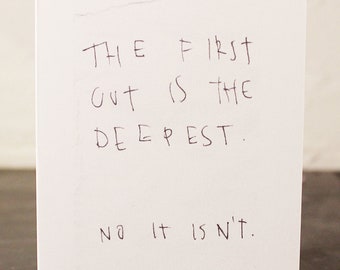 THE FIRST
CUT IS THE
DEEPEST.
NO IT ISN'T.